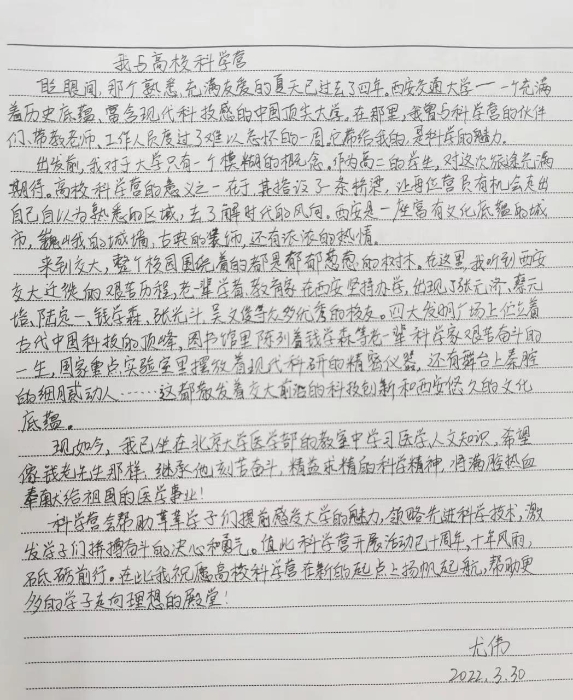 我与高校科学营
眨眼间,那个熟悉,充满友爱的夏天已过去了四年。西安交通大学——一个充满
着历史底蕴、富含现代科技感的中国顶尖大学。在那里,我曾与科学营的伙伴
们、带教老师、工作人员度过了难以忘怀的一周,它带给我的,是科学的魅力。
出发前,我对于大学只有一个模糊的概念。作为高二的学生,对这次旅途充满
期待。高校科学营的意义之一在于,其搭设了一条桥梁,让每位营员有机会走出
自己自以为熟悉的区域,去了解时代的风向。西安是一座富有文化底蕴的城
市,巍峨的城墙,古典的装饰,还有浓浓的热情。
来到交大,整个校园围绕着的都是郁郁葱葱的树木。在这里,我听到西安
交大迁徙的艰苦历程,老一辈学着、教育家在西安坚持办学,出现了张元济、蔡元
培、陆定一、钱学森、张光斗、吴文俊等众多优秀的校友。四大发明广场上伫立着
古代中国科技的顶峰,图书馆里陈列着钱学森等老一辈科学家艰苦奋斗的
一生,国家重点实验室里摆放着现代科研的精密仪器,还有舞台上秦腔
的细腻感动人……这都散发着交大前沿的科技创新和西安悠久的文化
底蕴。
现如今,我已坐在北京大学医学部的教室中学习医学人文知识,希望
像钱老先生那样,继承他刻苦奋斗,精益求精的科学精神,将满腔热血
奉献给祖国的医学事业!
科学营会帮助莘莘学子们提前感受大学的魅力,领略先进科学技术,激
发学子们拼搏奋斗的决心和勇气。值此科学营开展活动已十周年,十年风雨,
砥砺前行。在此我祝愿高校科学营在新的起点上扬帆起航,帮助更
多的学子走向理想的殿堂!
尤伟
2022.3.30